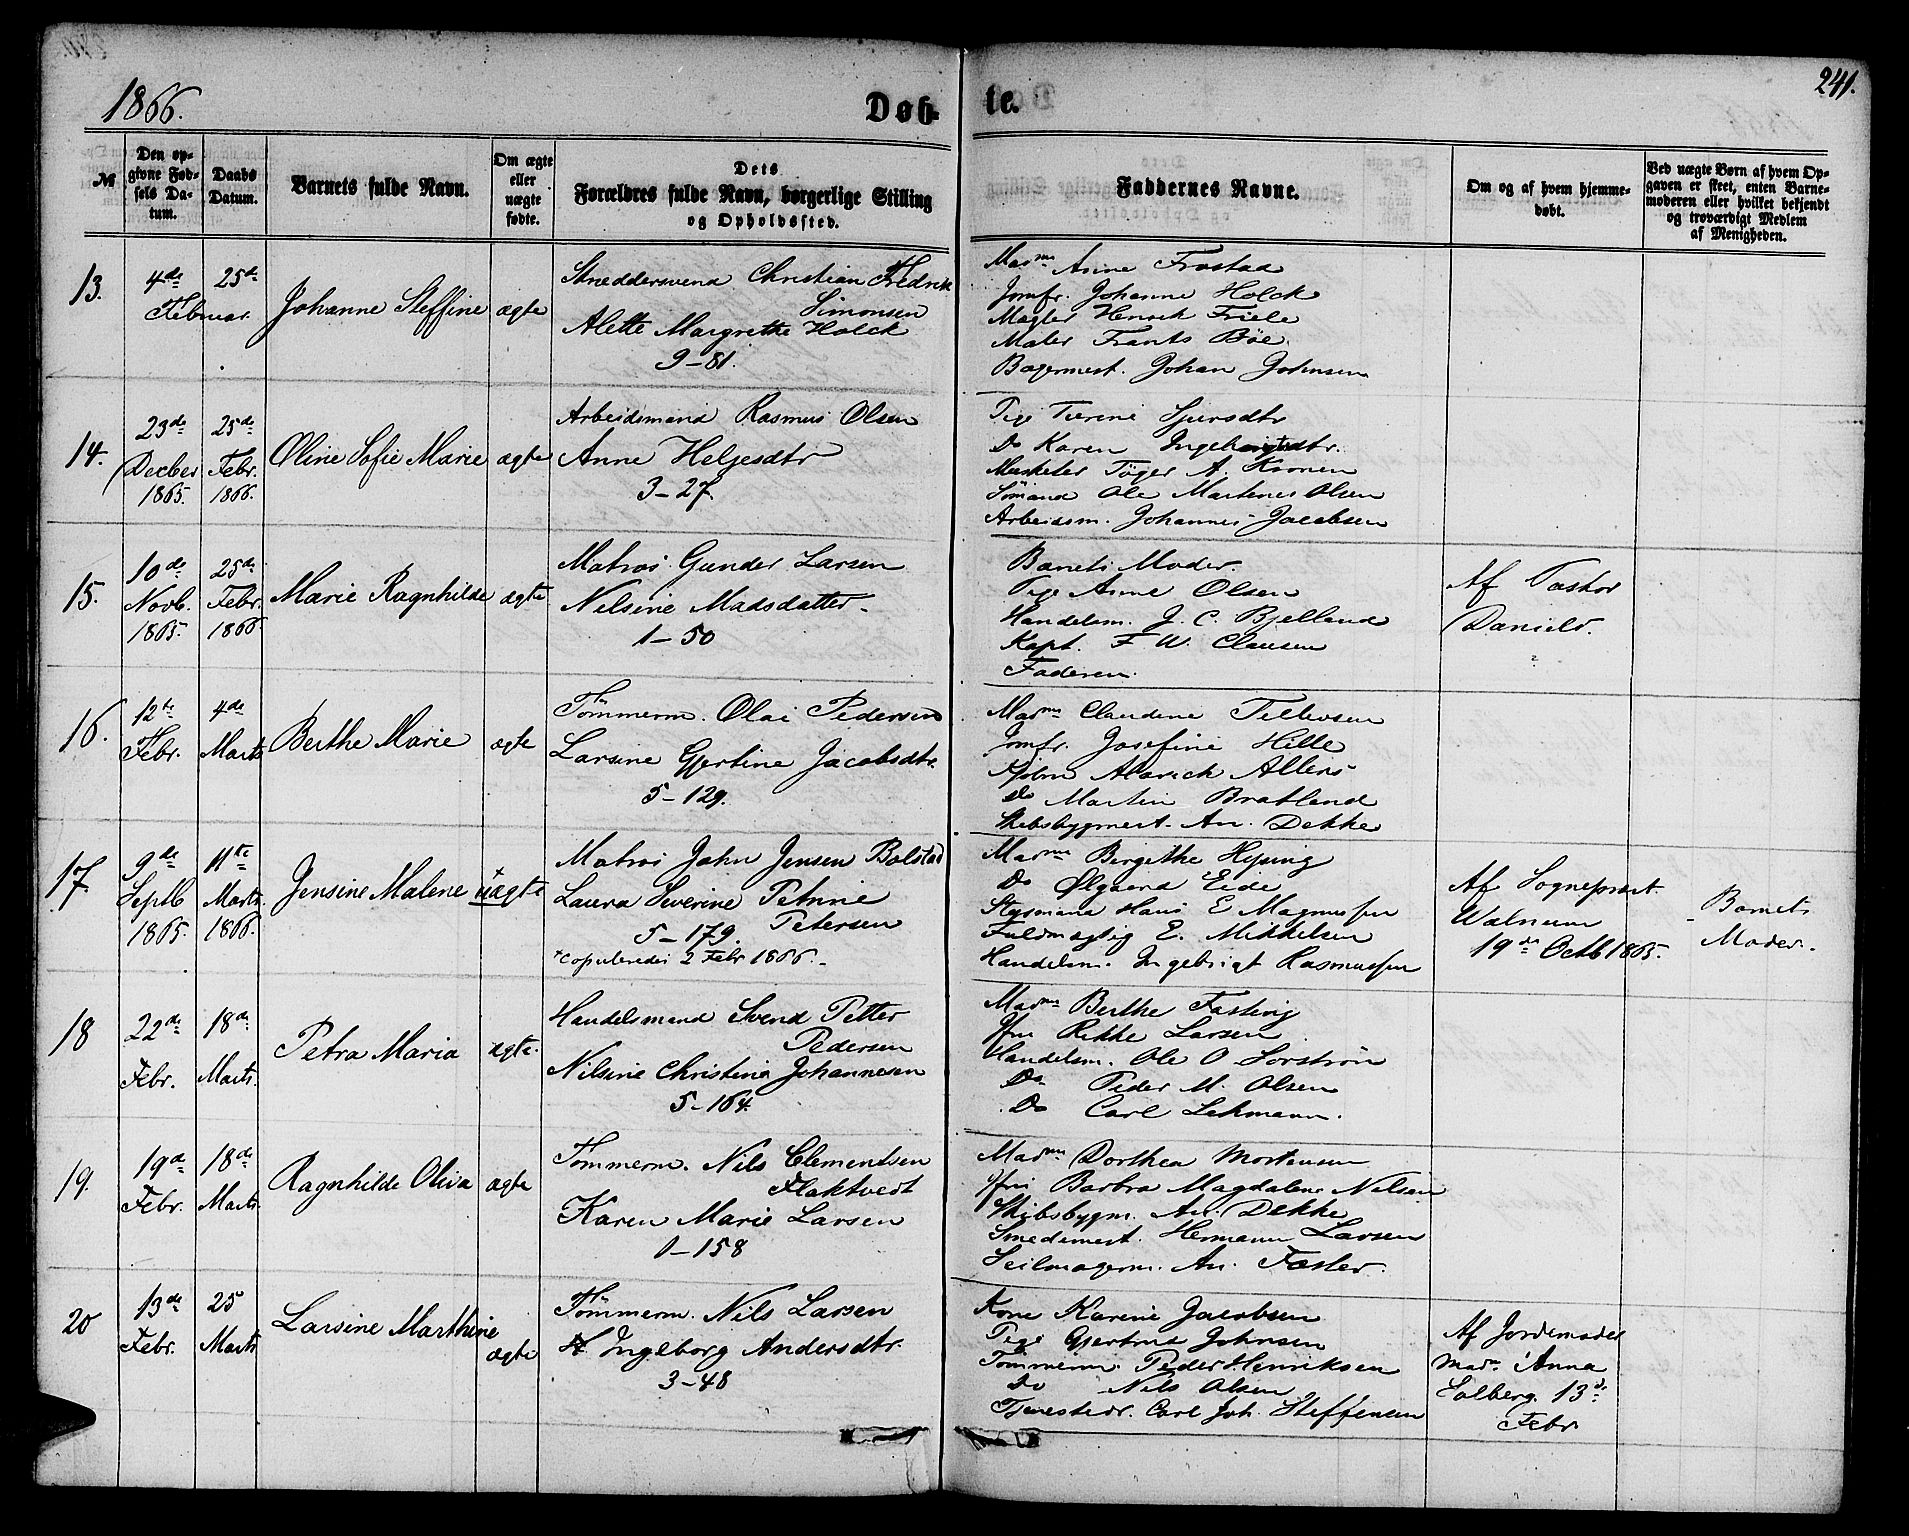 1866. Døb- te. 241.
№ | Den opgivne Fødsels Datum. | Daabs Datum. | Barnets fulde Navn. | Om ægte eller uægte fødte. | Dets Forældres fulde Navn, borgerlige Stilling og Opholdssted. | Faddernes Navne. | Om og af hvem hjemmedøbt. | Ved uægte Børn af hvem Opgaven er skeet, enten Barnemoderen eller hvilket bekjendt og troværdigt Medlem af Menigheden.
13. 4de 25de
Februar.
Johanne Steffine ægte
Skreddersvend Christian Fredrik
Simonsen
Alette Margrethe Holck
9-81.
Madme Anne Frostad
Jomfr. Johanne Holck
Mægler Henrik Friele
Maler Frants Bøe.
Bagermest. Johan Johnsen
14. 23de Decber 1865. 25de Febr. 1866.
Oline Sofie Marie ægte
Arbeidsmand Rasmus Olsen
Anne Heljesdtr
3-27.
Pige Sjursdtr
Do Karen Ingebrigtsdtr.
Musketer Tøger A.
Sømand Ole Martines Olsen
Arbeidsm. Johannes Jacobsen
15. 10de Novb. 1865. 25de Febr. 1866.
Marie Ragnhilde ægte
Matros Gunder Larsen
Nelsine Madsdatter
1-50
Barnets Moder.
Pige Anne Olsen
Handelsm. J. C. Bjelland
Kapt. F. W. Clausen
Faderen.
Af Pastor
Daniels.
16. 12te Febr. 4de Marts
Berthe Marie ægte
Tømmerm. Olai Pedersen
Larsine Gjertine Jacobsdtr.
5-129.
Madme Claudine Tellevsen
Jomfr. Josefine Hille
Alarick Allers
Do Martin Bratland
Skibsbygmest. An. Dekke
17. 9de Septb 1865. 11te Marts 1866.
Jensine Malene +uægte
Matros John Jensen Bolstad
Laura Severine Petrine
Petersen
5-179.
+copulerede 2 Febr 1866.
Madme Birgethe Hysing
Do Ølgaard Eide
Styrmand Hans E Magnussen
Fuldmægtig E. Mikkelsen
Handelsm. Ingebrigt Rasmussen
Af Sogneprest
Walnum
19de Octb 1865.
Barnets
Moder.
18 22de Febr. 18de Marts.
Petra Maria ægte.
Handelsmand Svend Petter
Pedersen
Nilsine Christine Johannesen
5-164.
Madme Berthe Fasting
Rikke Larsen
Handelsm. Ole O Sorstrøn
Do Peder M. Olsen
Do Carl Lehmann.
19. 19de Febr. 18de Marts.
Ragnhilde Oliva ægte
Tømmerm. Nils Clementsen
Flaktvedt
Karen Marie Larsen
1-158
Madme Dorthea Mortensen
Barbra Magdalene Nilsen
Skibsbygm. An. Dekke
Smedemest. Hermann Larsen
Seilmagerm. An. Fasler.
20 13de Febr. 25 Marts
Larsine Marthine ægte
Tømmerm. Nils Larsen
Ingeborg Andersdtr.
3-48
Kone Karine Jacobsen
Pige Gjertine Johnsen
Tømmerm. Peder Henriksen
Do Nils Olsen
Tjenestedr. Carl Joh. Steffensen
Af Jordemoder
Madm Anna
Solberg. 13de
Febr